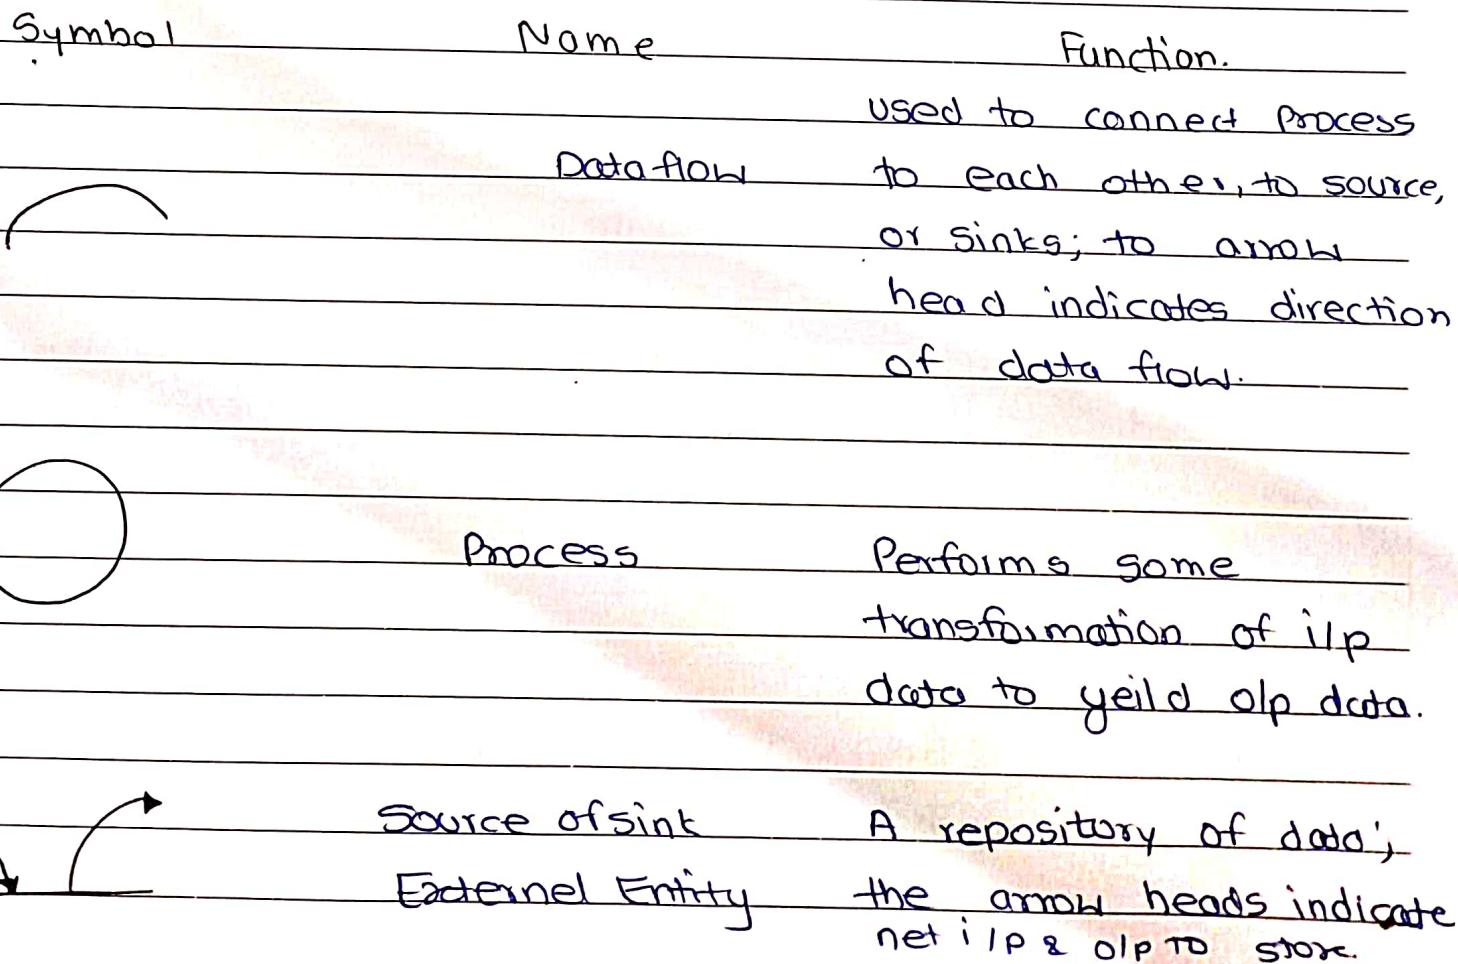 Symbol Name Function.
used to connect process
Data flow to each other, to source,
or sinks; to arrow
head indicates direction
of data flow.
Process Performs some
transformation of i/p
data to yeild o/p data.
Source of sink A repository of data;
Externel Entity the arrow heads indicate
net i/p & o/p TO store.